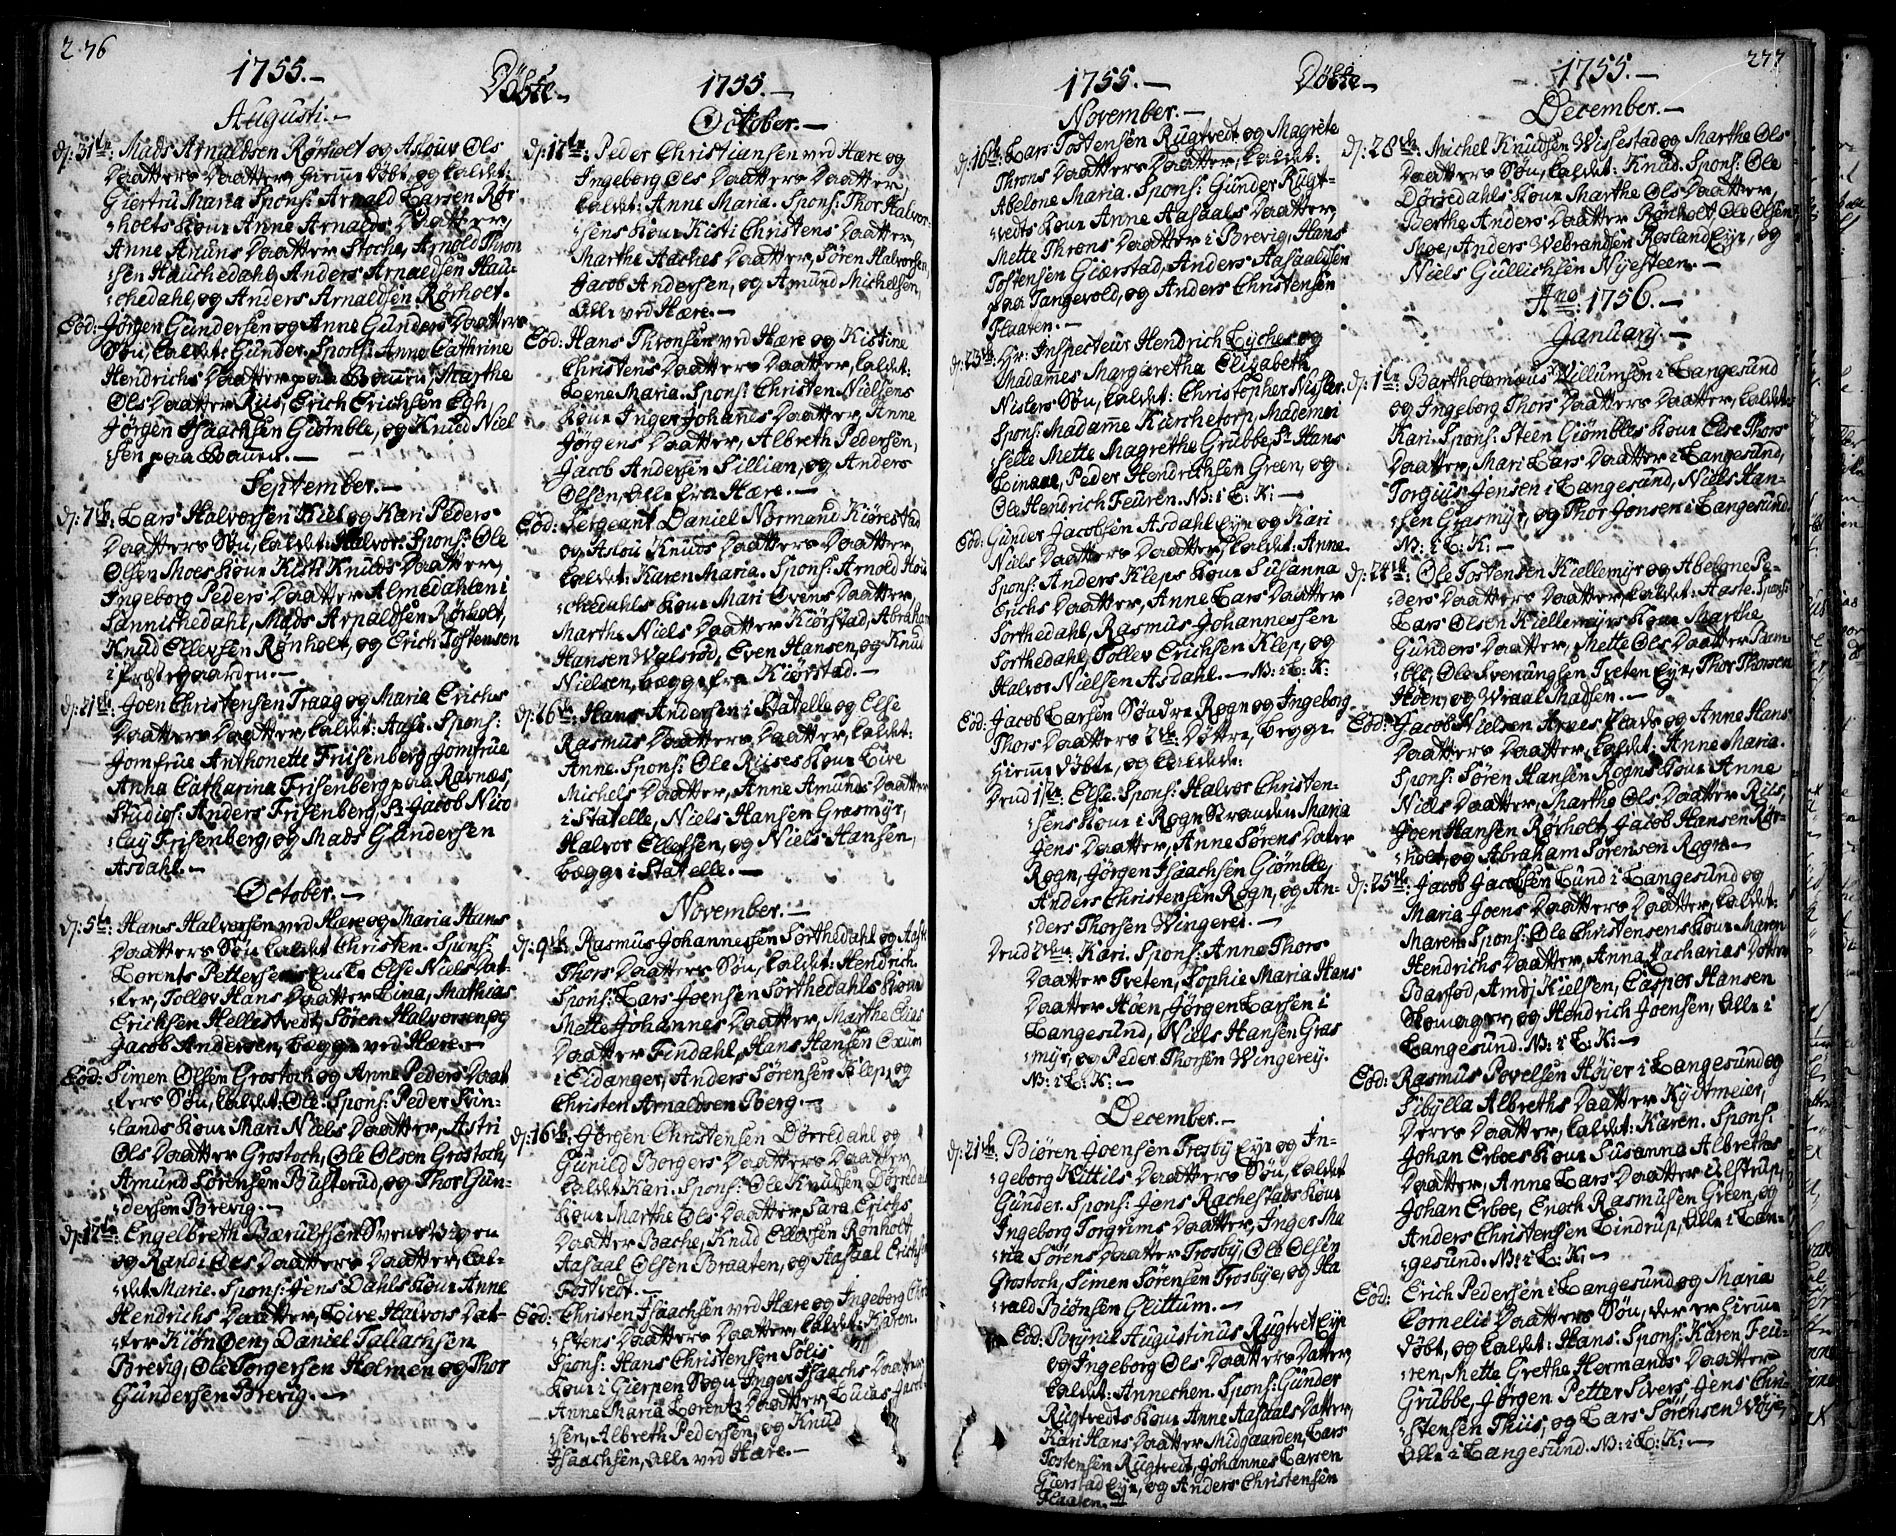 276
1755.–
Döbte.–
Augusti.–
d: 31te: Mads Arnaldsen Rörholt og Aslouv Ols
Daatters Daatter, hiemme döbt, og kaldet:
Giertru Maria Spons: Arnald Larsen Rör
:holts Kone Anne Arnalds Daatter,
Anne Amuns Daatter Stoche, Arnold Thron
:sen Hauchedahl, Anders Arnaldsen Hau:
:chedahl, og Anders Arnaldsen Rörholt.
Eod: Jörgen Gundersen og Anne Gunders Daatters
Sön, kaldet: Gunder. Spons: Anne Cathrine
Hendrichs Daatter paa Bamen, Marthe
Ols Daatter Riis, Erich Erichsen Egh,
Jörgen Isaachsen Giömble, og Knud Niel
:sen paa Bamen.–
September.–
d: 7de: Lars Halvorsen Kiil og Kari Peders
Daatters Sön, kaldet: Halvor. Spons: Ole
Olsen Moes Kone Kisti Knuds Daatter,
Ingeborg Peders Daatter Almedahlen i
Sannikedahl, Mads Arnaldsen Rörholt,
Knud Ellefsen Rönholt, og Erich Tostenson
i Præstegaarden.–
d: 21de: Joen Christensen Traag og Maria Erichs
Daatters Daatter, kaldet: Aase. Spons:
Jomfrue Anthonette Frisenberg, Jomfrue
Anna Catharina Frisenberg paa Ravnæs,
Studios: Anders Frisenberg, Sr Jacob Nico
:lay Frisenberg, og Mads Gundersen
Asdahl.–
October.–
d: 5te: Hans Halvorsen ved Hære og Maria Hans
Daatters Sön kaldet Christen. Spons:
Lorents Pettersens Enke Else Niels Dat-
ter, Tollov Hans Daatter Lina, Mathias
Erichsen Hellestvedt, Sören Halvorsen og
Jacob Andersen, begge ved Hære.–
Eod: Simen Olsen Grostoch og Anne Peders Daat
ters Sön, kaldet: Ole. Spons: Peder Fin-
:lands Kone Mari Niels Daatter, Astri
Ols Daatter Grostoch, Ole Olsen Grostoch,
Amund Sörensen Busterud, og Thor Gun-
:dersen Brevig.–
d: 12te: Engelbreth Bærulfsen Svens Vigen
og Randi Ols Daatters Daatter, kal-
:det Marie. Spons: Jens Dahls Kone Anne
Hendrichs Daatter, Live Halvors Dat-
:ter Kiön Oen, Daniel Tallachsen
Brevig, Ole Torgersen Holmen og Thor
Gundersen Brevig.–
1755.–
October.–
d: 12te: Peder Christiansen ved Hære og
Ingeborg Ols Daatters Daatter,
kaldet: Anne Maria. Spons: Thor Halvor-
:sens Kone Kisti Christens Daatter,
Marthe Aaches Daatter, Sören Halvorsen,
Jacob Andersen, og Amund Michelsen,
alle ved Hære.–
Eod: Hans Thronsen ved Hære og Kistine
Christens Daatters Daatter, kaldet:
Lene Maria. Spons: Christen Nielsens
Kone Inger Johannes Daatter, Anne
Jörgens Daatter, Albreth Pedersen,
Jacob Andersen Lillian, og Anders
Olsen, alle fra Hære.–
Eod: Sergeant Daniel Normand Kiörestad
og Aslou Knuds Daatters Daatter
kaldet: Karen Maria. Spons: Arnold Hou
:chedahls Kone Mari Ovens Daatter,
Marthe Niels Daatter Kiörstad, Abraham
Hansen Walsröd, Even Hansen, og Knud
Nielsen, begge fra Kiörstad.–
d: 26de: Hans Andersen i Statelle og Else
Rasmus Daatters Daatter, kaldet:
Anne. Spons: Ole Riises Kone Live
Michels Daatter, Anne Amunds Daatter
i Statelle, Niels Hansen Grasmyr,
Halvor Ellefsen, og Niels Hansen,
begge i Statelle.–
November.–
d: 9de: Rasmus Johannessen Sorthedahl og Aase
Thors Daatters Sön, kaldet: Hendrich.
Spons: Lars Joensen Sorthedahls Kone
Mette Johannes Daatter, Marthe Elias
Daatter Findahl, Hans Hansen Oxum
i Eidanger, Anders Sörensen Klep, og
Christen Arnaldsen Berg.–
d: 16de: Jörgen Christensen Dörredahl og
Gunild Borgers Daatters Daatter,
kaldet Kari. Spons: Ole Knudsen Dörredahls
Kone Marthe Ols Daatter, Sara Erichs
Daatter Bache, Knud Ellefsen Rönholt
Aasaal Olsen Braaten, og Aasaal Erichsen
Tostvedt.–
Eod: Christen Isaachsen ved Hære og Ingeborg Chri
:stens Daatters Daatter, kaldet: Karen.
Spons: Hans Christensen Solis
Kone i Gierpen Sogn Inger Isaachs Daatter,
Anne Maria Lorentz Daatter, Lucas Jacob-
:sen, Albreth Pedersen, og Knud
Isaachsen, alle ved Hære.–
277
1755.–
Döbte.–
November.–
d: 16de: Lars Tostensen Rugtvedt og Magrete
Throns Daatters Daatter, kaldet:
Abelone Maria. Spons: Gunder Rugt-
:vedts Kone Anne Aasaals Daatter,
Mette Throns Daatter i Brevig, Hans
Tostensen Giærstad, Anders Aasaaldsen
paa Tangevold, og Anders Christensen
Plaaten.–
d: 23de: Hr: Inspecteur Hendrich Lyches og
Madames Margaretha Elisabeth
Nislers Sön, kaldet: Christopher Nisler.
Spons: Madame Kierchetorp, Mademoi
:selle Mette Magrethe Grubbe, Sr Hans
Linaae, Peder Hendrichsen Green, og
Ole Hendrich Feuren. N: i L: K:–
Eod: Gunder Jacobsen Asdahl Eye og Kari
Niels Daatters Daatter kaldet: Anne
Spons: Anders Kleps Kone Susanna
Erichs Daatter, Anne Lars Daatter
Sorthedahl, Rasmus Johannessen
Sorthedahl, Tollev Erichsen Klep, og
Halvor Nielsen Asdahl.– N: i L: K:
Eod: Jacob Larsen Söndre Rogn og Ingeborg
Thors Daatters 2de: Döttre, begge
hiemme döbte, og kaldede:
Dend 1ste: Else. Spons: Halvor Christen-
:sens Kone i Rogn Stranden Maria
Jens Daatter, Anne Sörens Dater
Rogn, Jörgen Isaachsen Giömble,
Anders Christensen Rogn, og An-
:ders Thorsen Wingerei.–
Dend 2den: Kari. Spons: Anne Thors
Daatter Treten, Sophie Maria Hans
Daatter Höen, Jörgen Larsen i
Langesund, Niels Hansen Gras
:myr, og Peder Thorsen Wingerey.
N: i L: K:–
December.–
d: 21de: Biören Joensen Trosby Eye og In-
:geborg Kittils Daatters Sön, kaldet
Gunder. Spons: Jens Rachestads Kone
Ingeborg Torgrims Daatter, Inger Ma
:ria Sörens Daatter Trosby, Ole Olsen
Grostoch, Simen Sörensen Trosbye, og Ha
:rald Biönsen Glittum.–
Eod: Brynil Augustinus Rugtvet Eye
og Ingeborg Ols Daatters Dater,
kaldet: Annechen. Spons: Gunder
Rugtvedts Kone Anne Aasaals Datter,
Kari Hans Daatter Midgaarden, Lars
Tostensen Rugtvedt, Johannes Larsen
Gierstad Eye, og Anders Christensen
Plaaten.–
1755.–
December.–
d: 28de: Michel Knudsen Wissestad og Marthe Ols
Daatters Sön, kaldet: Knud. Spons: Ole
Dörredahls Kone Marthe Ols Daatter,
Berthe Anders Daatter Rönholt Ole Olsen
Moe, Anders Webrandsen Rosland Eye, og
Niels Gullichsen Nyesteen.–
Ano: 1756.–
Januarij.–
d: 1te: Bartholomæus Willumsen i Langesund
og Ingeborg Thors Daatters Daatter, kaldet:
Kari. Spons: Steen Giömbles Kone Else Thors
Daatter, Mari Lars Daatter i Langesund,
Torgius Jensen i Langesund, Niels Han-
:sen Grasmyr, og Thor Jonsen i Langesund.
N: i L: K:–
d: 24de: Ole Tostensen Kiellemyr og Abelone Pe-
:ders Daatters Daatter, kaldet: Aaste. Spons:
Lars Olsen Kiellemyrs Kone Marthe
Gunders Daatter, Mette Ols Daatter Bam-
:ble, Ole Svenungsen Treten Eye, Thor Thorsen
Höen, og Wraal Madsen.–
Eod: Jacob Nielsen Arnes Plads og Anne Hans
Daatters Daatter, kaldet: Anne Maria.
Spons: Sören Hansen Rogns Kone Anne
Niels Daatter, Marthe Ols Daatter Riis,
Joen Hansen Rörholt, Jacob Hansen Rör-
:holt, og Abraham Sörensen Rogn.–
d: 25de: Jacob Jacobsen Lund i Langesund og
Maria Joens Daatters Daatter, kaldet:
Maren. Spons: Ole Christensens Kone Maren
Hendrichs Daatter, Anna Zacharias Datter
Barfod, Amdj Nielsen, Casper Hansen
Skomager, og Hendrich Joensen, alle i
Langesund. N: i L: K:–
Eod: Rasmus Povelsen Höyer i Langesund og
Sibylla Albreths Daatter Kydtmeier,
Deres Daatter, kaldet: Karen. Spons:
Johan Erboes Kone Susanna Albreths
Daatter, Anne Lars Daatter Ulstrup,
Johan Erboe, Enoch Rasmusen Green, og
Anders Christensen Lindrup, alle i Lan-
:gesund. N: i L: K:–
Eod: Erich Pedersen i Langesund og Maria
Cornelii Daatters Sön, der er hiemme
döbt, og kaldet: Hans. Spons: Karen Feu-
:ren, Mette Grethe Hermands Daatter
Grubbe, Jörgen Petter Sivers, Jens Chri-
:stensen Thiis, og Lars Sörensen Wöye,
alle i Langesund. N: i L: K:–